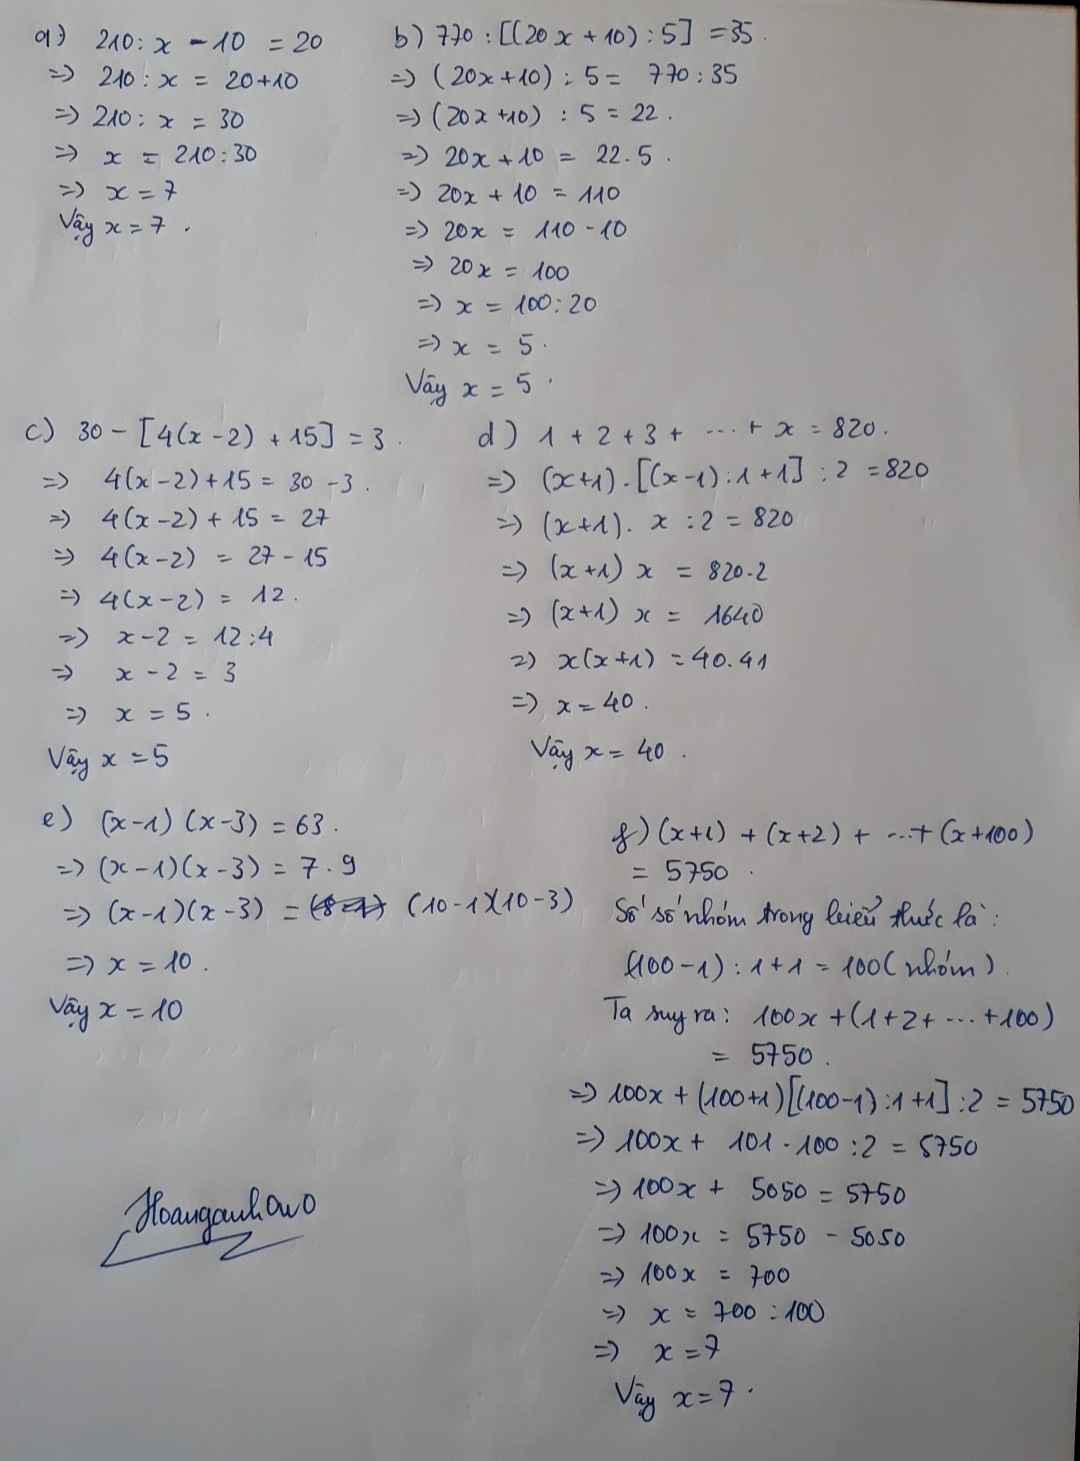 a) 210 : x - 10 = 20
=> 210 : x = 20+10
=> 210 : x = 30
=> x = 210:30
=> x = 7
Vậy x = 7 .
b) 770 : [(20x + 10) : 5] = 35 .
=> (20x+10) : 5 = 770 : 35
=> (20x +10) : 5 = 22 .
=> 20x + 10 = 22.5 .
=> 20x + 10 = 110
=> 20x = 110 - 10
=> 20x = 100
=> x = 100 : 20
=> x = 5 .
Vậy x = 5 .
c) 30 - [4(x-2) + 15] = 3 .
=> 4(x-2)+15 = 30 - 3 .
=> 4(x-2) + 15 = 27
=> 4(x-2) = 27 - 15
=> 4(x-2) = 12 .
=> x-2 = 12 : 4
=> x - 2 = 3
=> x = 5 .
Vậy x = 5
d) 1 + 2 + 3 + ... + x = 820 .
=> (x+1) . [(x-1) : 1 + 1] : 2 = 820
=> (x+1) . x : 2 = 820
=> (x+1) x = 820.2
=> (x+1) x = 1640
=> x(x+1) = 40.41
=> x = 40 .
Vậy x = 40 .
e) (x-1) (x-3) = 63 .
=> (x-1)(x-3) = 7 . 9
=> (x-1)(x-3) = (10-1)(10-3)
=> x = 10 .
Vậy x = 10
f) (x+1) + (x+2) + ...+ (x+100)
= 5750 .
Số số nhóm trong biểu thức là :
(100-1) : 1+1 = 100 (nhóm) .
Ta suy ra : 100x + (1+2+ ... +100)
= 5750 .
=> 100x + (100+1)[(100-1) : 1+1] : 2 = 5750
=> 100x + 101 . 100 : 2 = 5750
=> 100x + 5050 = 5750
=> 100x = 5750 - 5050
=> 100x = 700
=> x = 700 : 100
=> x = 7
Vậy x = 7 .
HoanganhOwO